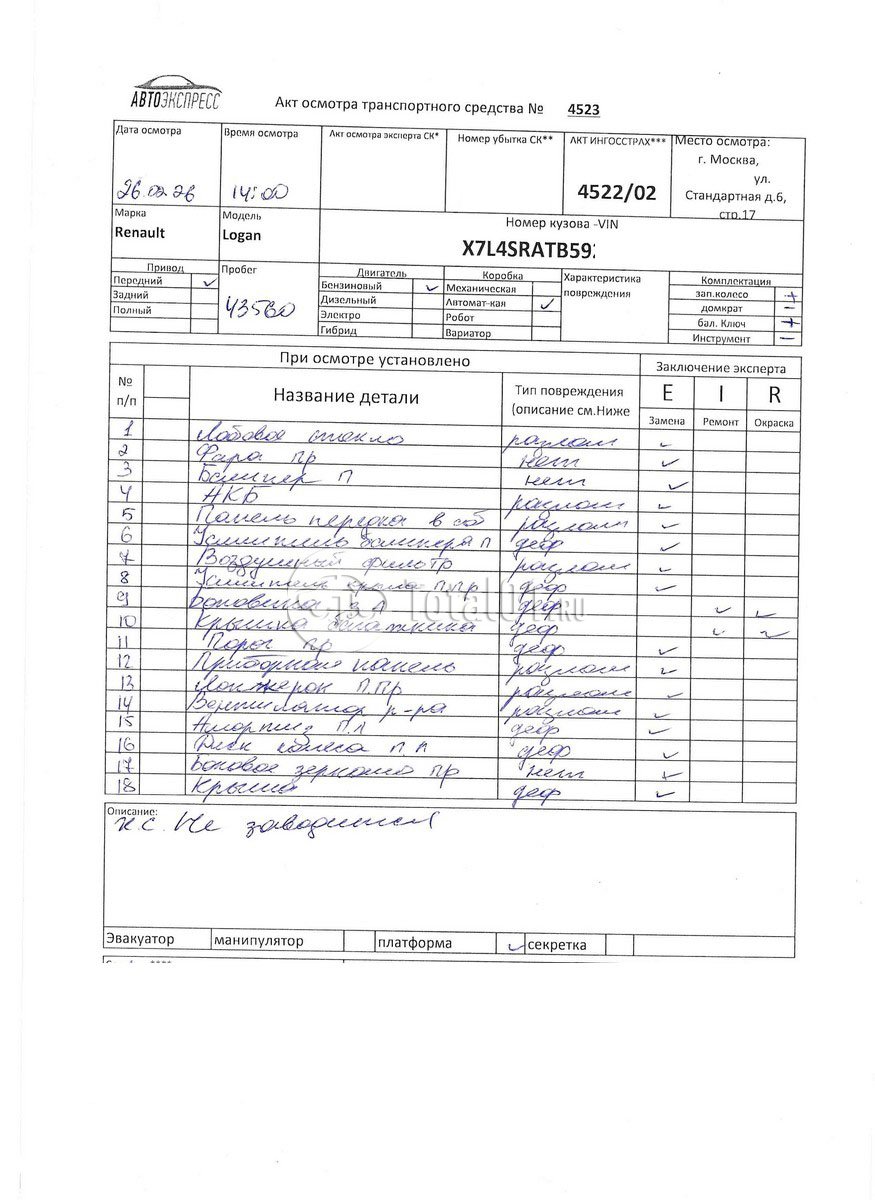 АВТОЭКСПРЕСС
Акт осмотра транспортного средства № 4523
Дата осмотра
Время осмотра
Акт осмотра эксперта СК*
Номер убытка СК**
АКТ ИНГОССТРАХ***
Место осмотра:
26.02.26
14:00
4522/02
г. Москва,
ул.
Стандартная д.6,
стр.17
Марка
Модель
Номер кузова -VIN
Renault
Logan
X7L4SRATB59
Привод
Пробег
Двигатель
Коробка
Характеристика
повреждения
Комплектация
Передний ✓
43560
Бензиновый ✓
Механическая
зап.колесо +
Задний
Дизельный
Автомат-кая ✓
домкрат –
Полный
Электро
Робот
бал. Ключ +
Гибрид
Вариатор
Инструмент –
При осмотре установлено
Заключение эксперта
№
п/п
Название детали
Тип повреждения
(описание см.Ниже
E I R
Замена Ремонт Окраска
1 Лобовое стекло разлом ✓
2 Фара пр нет ✓
3 Бампер П нет ✓
4 АКБ разлом ✓
5 Панель передка в сб разлом ✓
6 Усилитель бампера П деф ✓
7 Воздушный фильтр разлом ✓
8 Усилитель крыла П.Пр деф ✓
9 Боковина з Л деф ✓ ✓
10 Крышка багажника деф ✓ ✓
11 Порог пр деф ✓
12 Приборная панель разлом ✓
13 Лонжерон П.Пр разлом ✓
14 Вентилятор р-ра разлом ✓
15 П.Л деф ✓
16 Диск колеса П.П деф ✓
17 Боковое зеркало пр нет ✓
18 Крыша деф ✓
TotalOut.RU
Описание:
Не заводится
Эвакуатор манипулятор платформа ✓ секретка